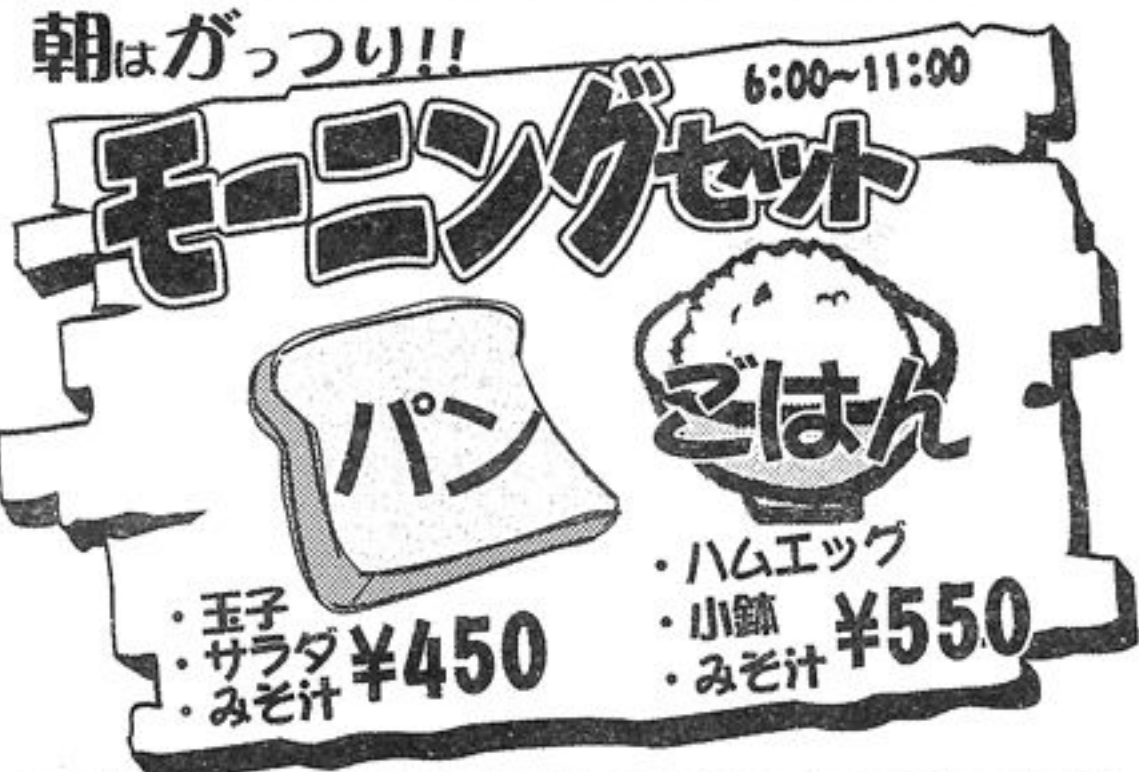 朝はがっつり!!
6:00~11:00
モーニングセット
パン
・玉子
・サラダ
・みそ汁
¥450
ごはん
・ハムエッグ
・小鉢
・みそ汁
¥550